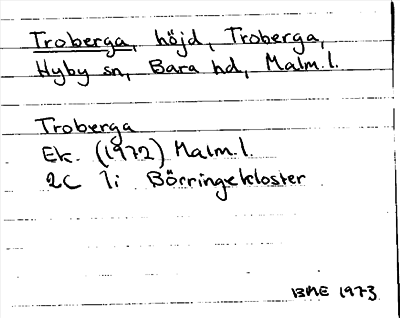 Troberga, höjd, Troberga,
Hyby sn, Bara hd, Malm.l.
Troberga
Ek. (1972) Malm.l.
2C 1i Börringekloster
BME 1973